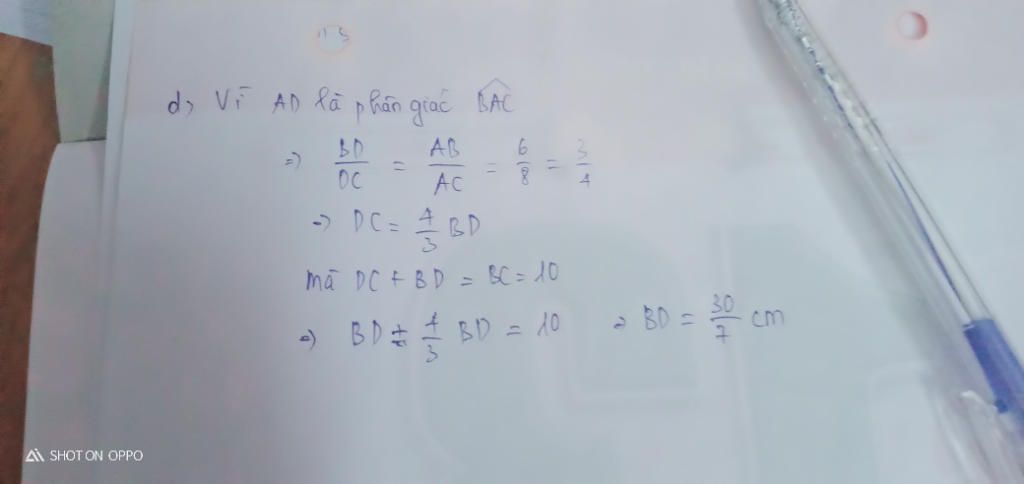 d, Vì AD là phân giác \widehat{BAC}
=> \frac{BD}{DC} = \frac{AB}{AC} = \frac{6}{8} = \frac{3}{4}
=> DC = \frac{4}{3} BD
mà DC + BD = BC = 10
=> BD + \frac{4}{3} BD = 10 => BD = \frac{30}{7} cm
SHOT ON OPPO